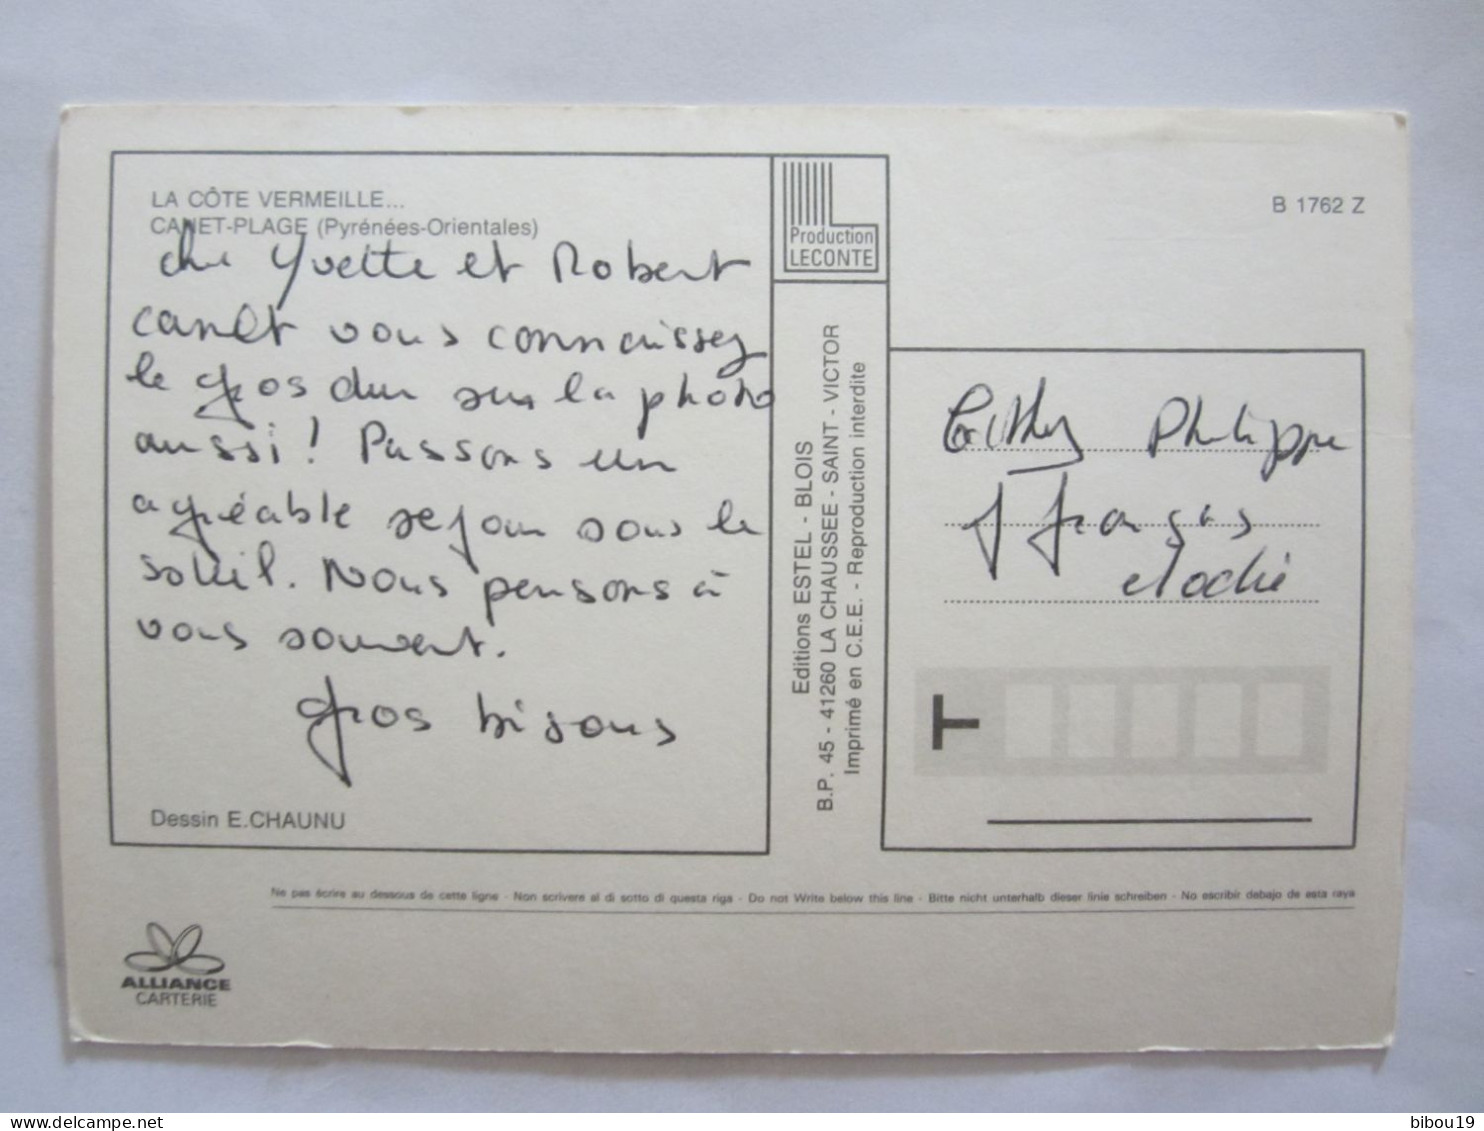 LA CÔTE VERMEILLE...
CANET-PLAGE (Pyrénées-Orientales)
Yvette et Robert
canet vous connaissez
le gros dur sur la photo
aussi! Passons un
agréable sejour sous le
soleil. Nous pensons à
vous souvent.
gros bisous
Dessin E.CHAUNU
Production
LECONTE
Editions ESTEL - BLOIS
B.P. 45 - 41260 LA CHAUSSEE - SAINT - VICTOR
Imprimé en C.E.E. - Reproduction interdite
B 1762 Z
Cathy Philippe
François
elodie
T
Ne pas écrire au dessous de cette ligne - Non scrivere al di sotto di questa riga - Do not Write below this line - Bitte nicht unterhalb dieser linie schreiben - No escribir debajo de esta raya
ALLIANCE
CARTERIE
bibou19